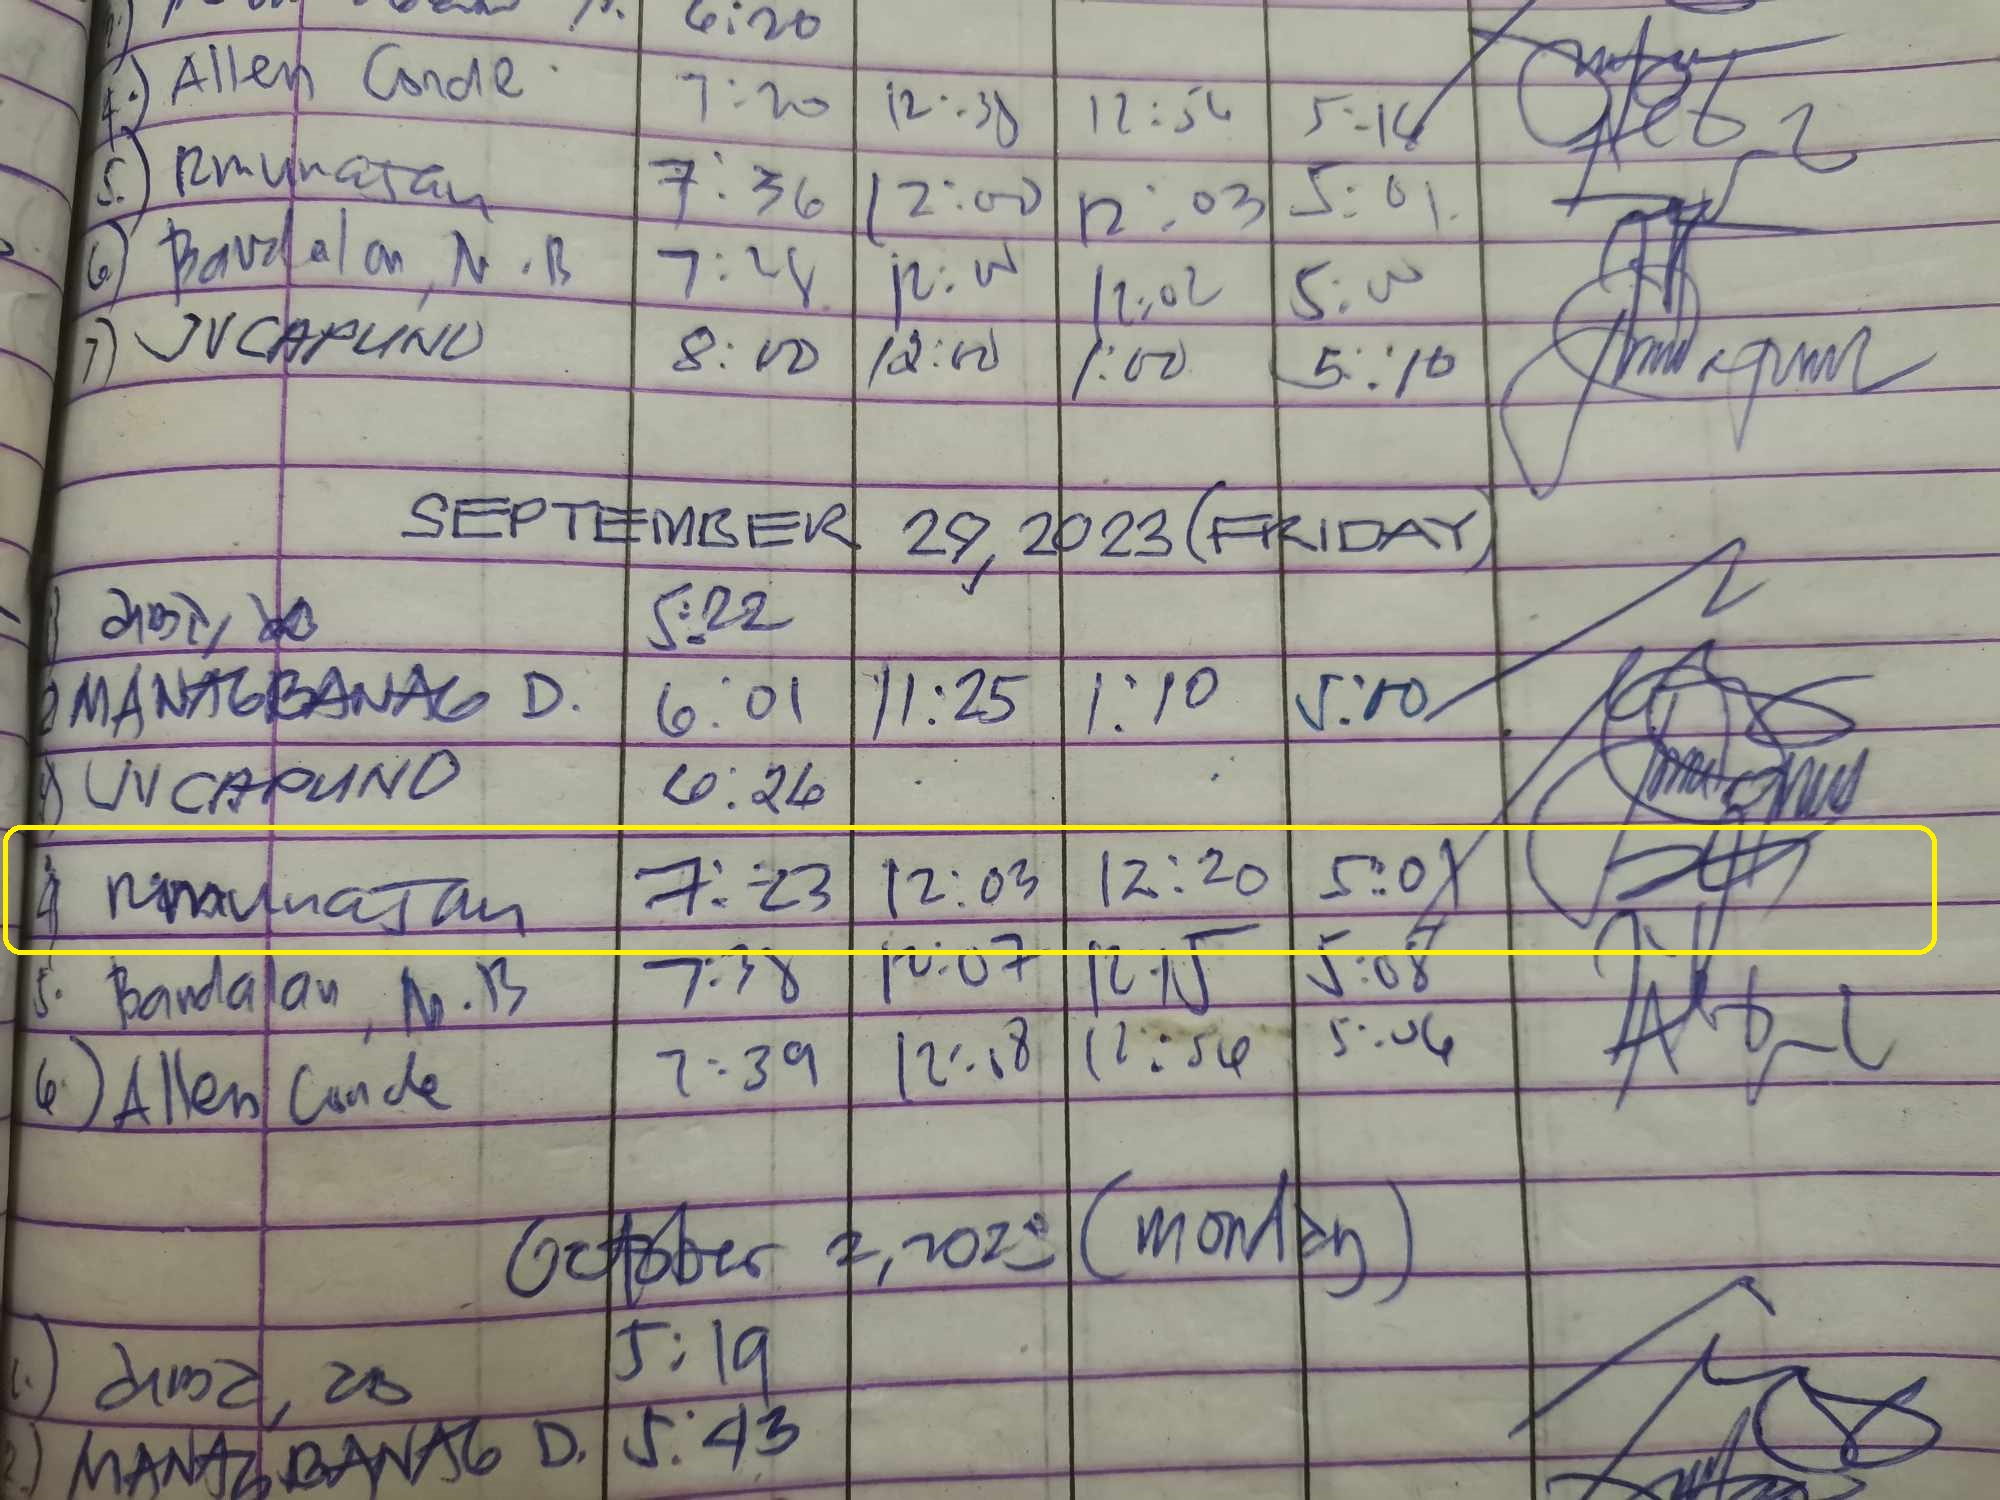 6:20
4.) Allen Conde 7:20 12:38 12:54 5:16
5.) Rmunatan 7:36 12:00 12:03 5:01
6) Bandalan, N.B 7:28 12:00 12:02 5:00
7) JVCAPUNO 8:00 12:00 1:00 5:10
SEPTEMBER 29, 2023 (FRIDAY)
5:22
2) MANAGBANAG D. 6:01 11:25 1:10 5:00
JVCAPUNO 6:26
4) 7:23 12:03 12:20 5:01
5. Bandalan, N.B 7:38 12:07 12:15 5:08
6.) Allen Conde 7:39 12:18 12:54 5:04
October 2, 2023 (Monday)
1.) 5:19
2.) MANAGBANAG D. 5:43